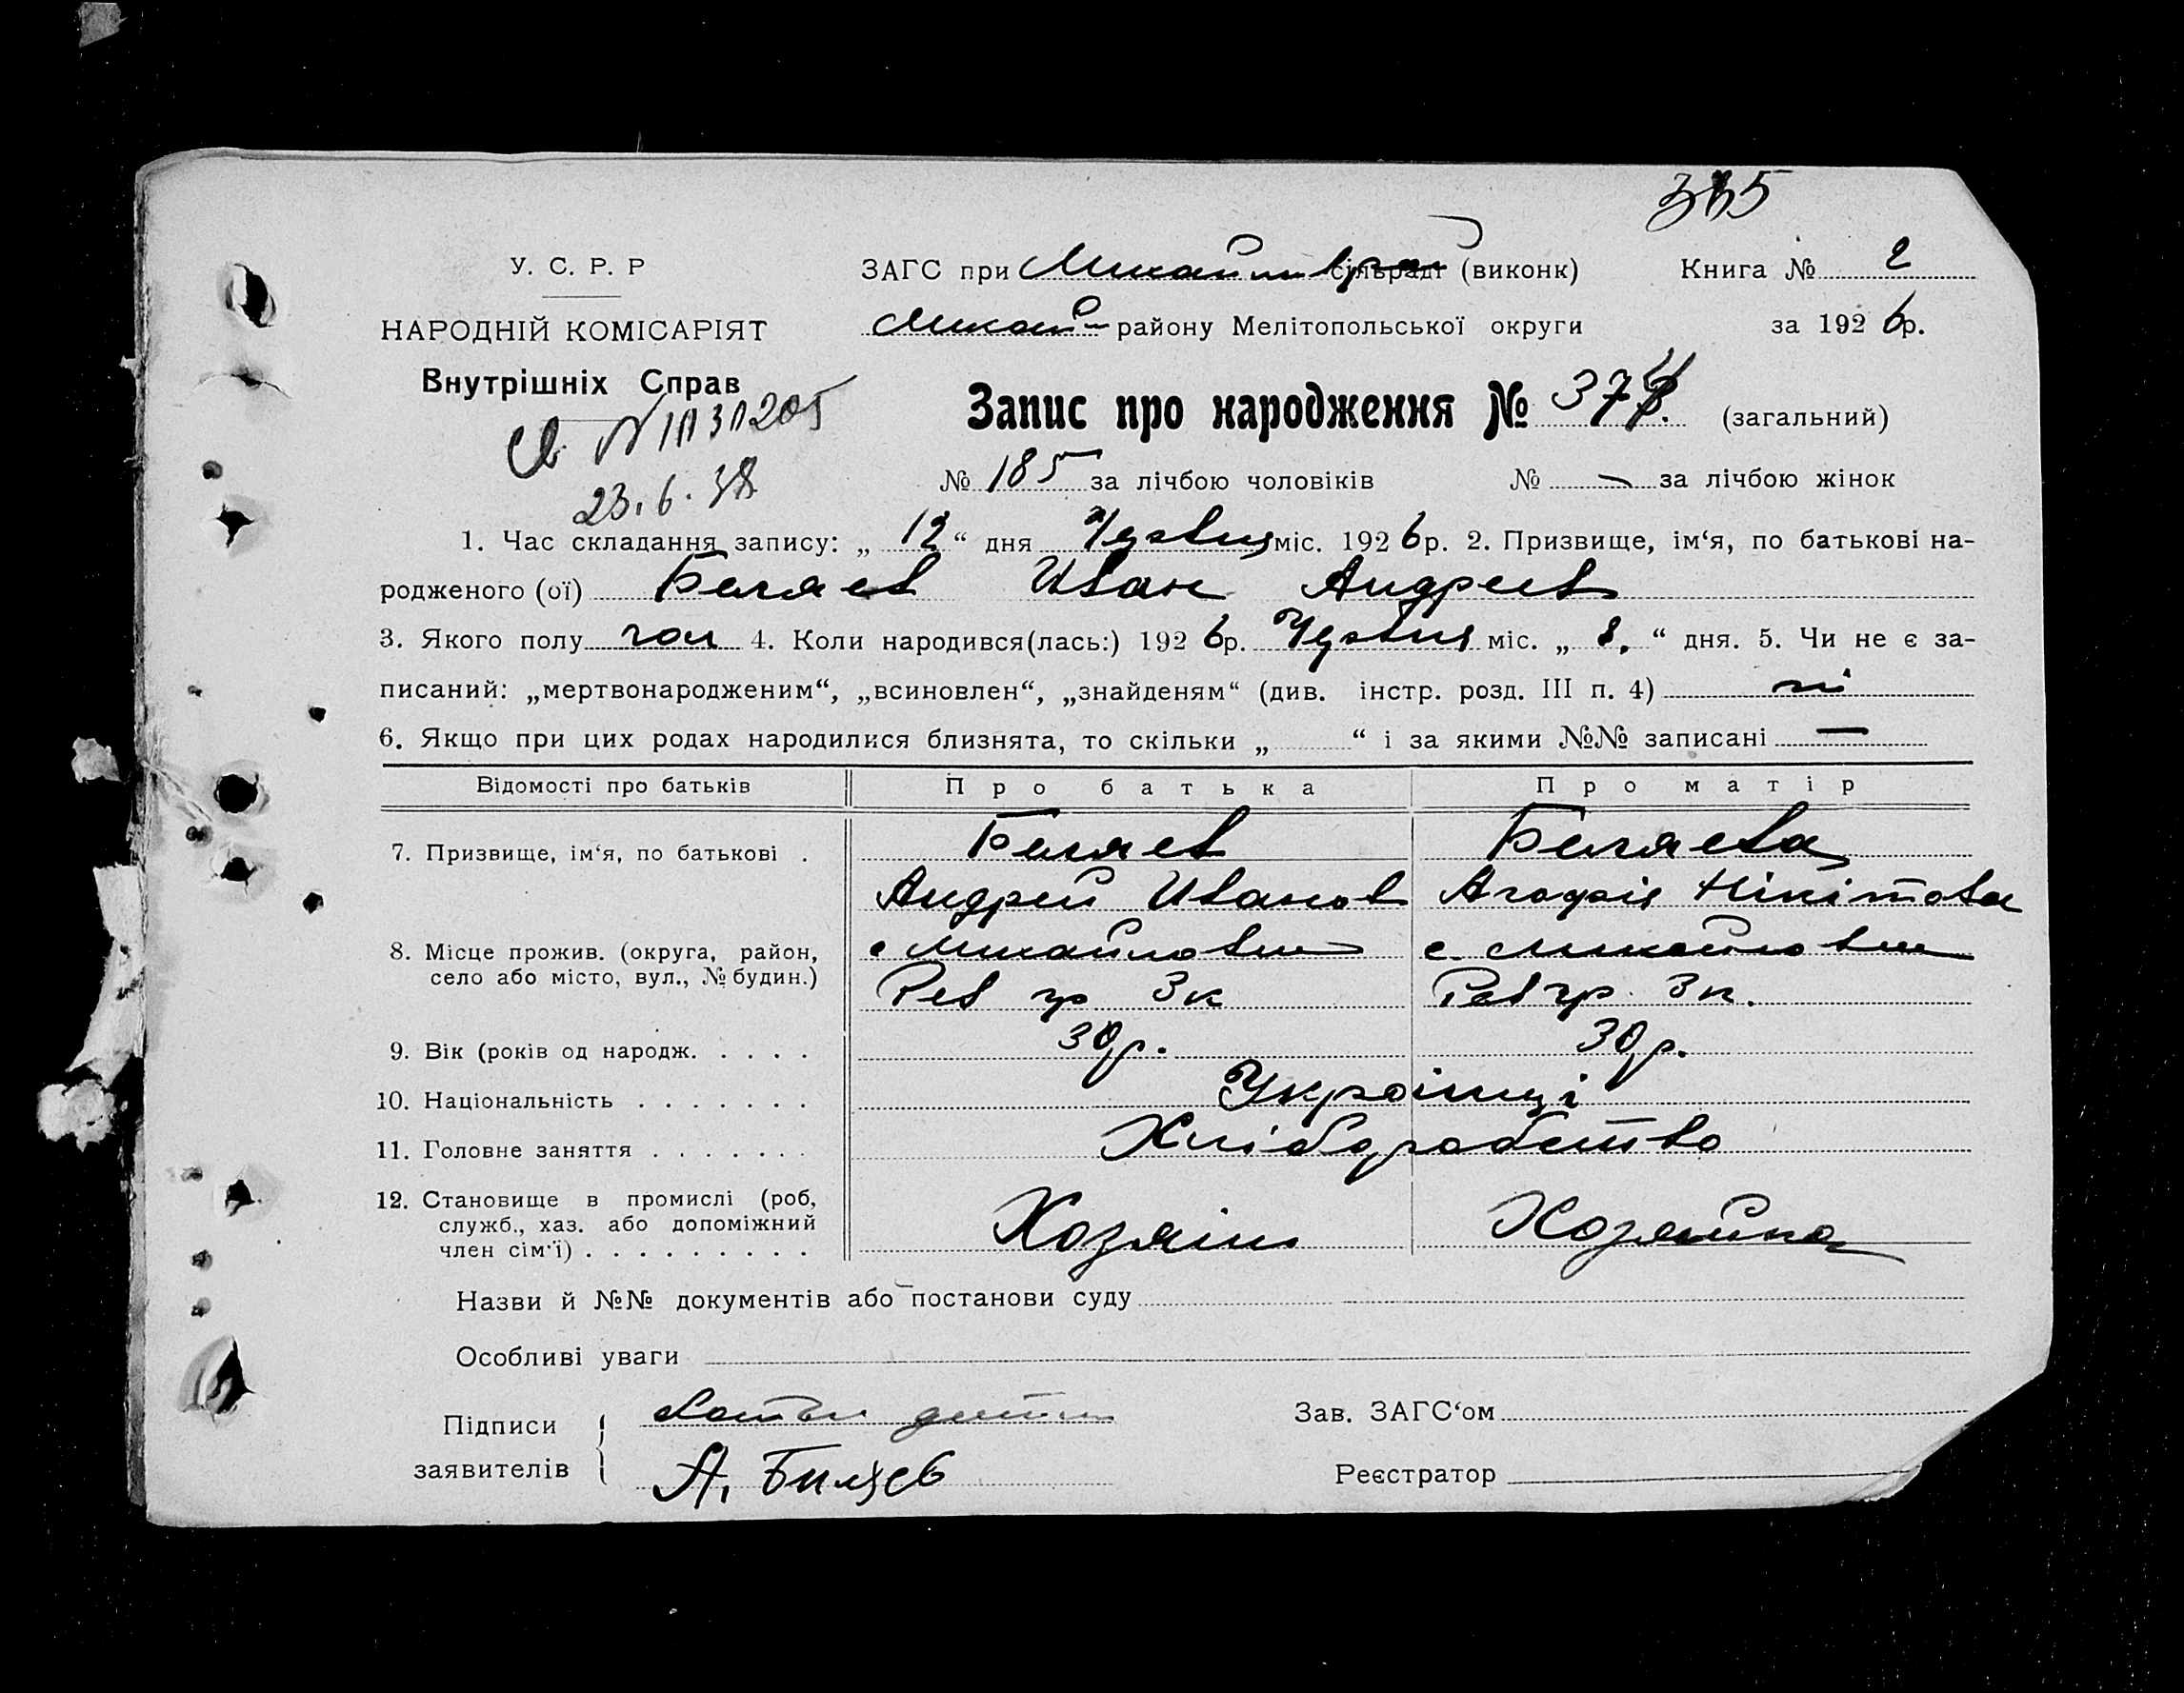 У. С. Р. Р
НАРОДНІЙ КОМІСАРІЯТ
Внутрішніх Справ
23.6.38
ЗАГС при сільраді (виконк) Книга № 2
району Мелітопольської округи за 1926р.
Запис про народження № 374 (загальний)
№ 185 за лічбою чоловіків № — за лічбою жінок
1. Час складання запису: „ 12 “ дня Червця міс. 1926р. 2. Призвище, ім‘я, по батькові на-
родженого (ої) Беляев Иван Андреев
3. Якого полу чол 4. Коли народився(лась:) 1926р. Червня міс. „ 8. “ дня. 5. Чи не є за-
писаний: „мертвонародженим“, „всиновлен“, „знайденям“ (див. інстр. розд. III п. 4) ні
6. Якщо при цих родах народилися близнята, то скільки „ “ і за якими №№ записані —
Відомості про батьків Про батька Про матір
7. Призвище, ім‘я, по батькові . Беляев Беляева
Андрей Иванов Агафія Нікітова
8. Місце прожив. (округа, район, село або місто, вул., № будин.) с Михайловка с. Михайловка
Рев гр 3к Рев гр. 3к.
9. Вік (років од народж. . . . . 30р. 30р.
10. Національність . . . . . . . Українці
11. Головне заняття . . . . . . . Хліборобство
12. Становище в промислі (роб, служб., хаз. або допоміжний член сім‘ї) . . . . . . . . . Хозяін Хозяйка
Назви й №№ документів або постанови суду
Особливі уваги
Підписи Зав. ЗАГС‘ом
заявителів А. Биляев Реєстратор